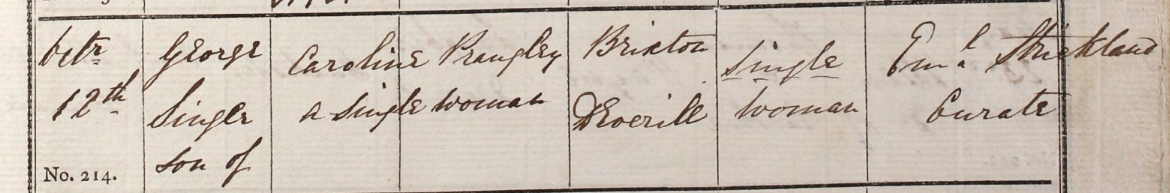 Octr George Caroline Prangley Brixton Single Em.l Strickland
12th Singer a Single woman DEverill woman Curate
No. 214. son of